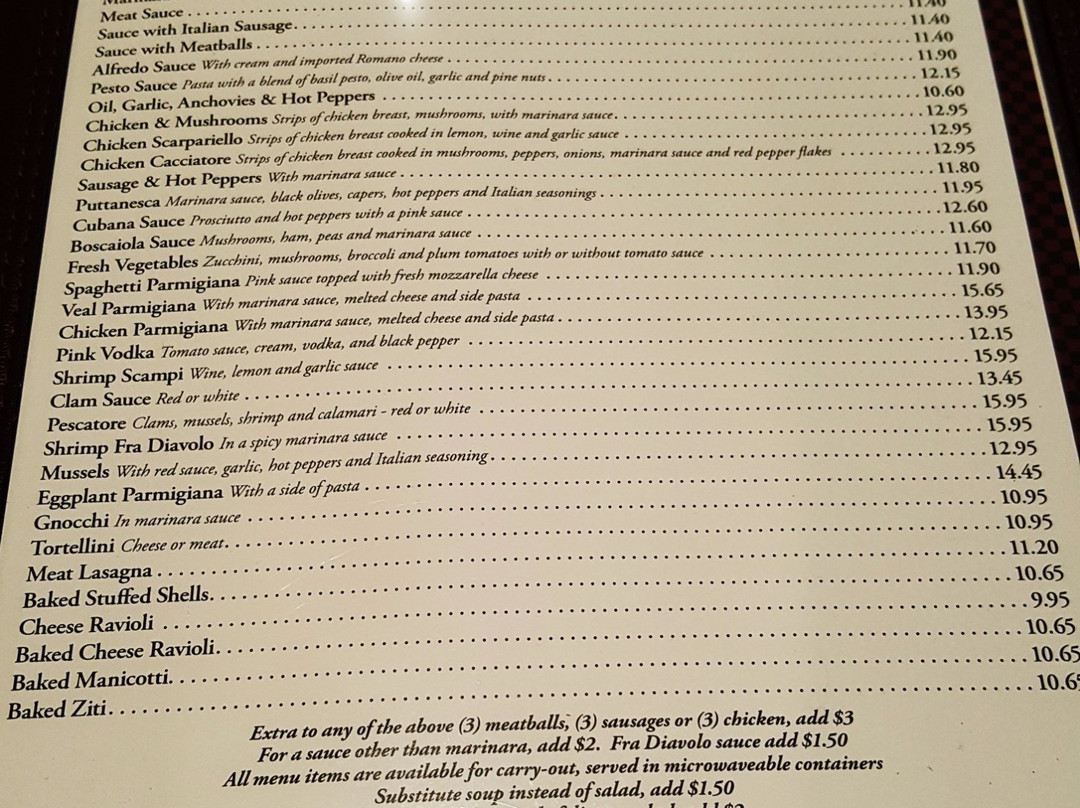 Meat Sauce 11.40
Sauce with Italian Sausage 11.40
Sauce with Meatballs 11.40
Alfredo Sauce With cream and imported Romano cheese 11.90
Pesto Sauce Pasta with a blend of basil pesto, olive oil, garlic and pine nuts 12.15
Oil, Garlic, Anchovies & Hot Peppers 10.60
Chicken & Mushrooms Strips of chicken breast, mushrooms, with marinara sauce 12.95
Chicken Scarpariello Strips of chicken breast cooked in lemon, wine and garlic sauce 12.95
Chicken Cacciatore Strips of chicken breast cooked in mushrooms, peppers, onions, marinara sauce and red pepper flakes 12.95
Sausage & Hot Peppers With marinara sauce 11.80
Puttanesca Marinara sauce, black olives, capers, hot peppers and Italian seasonings 11.95
Cubana Sauce Prosciutto and hot peppers with a pink sauce 12.60
Boscaiola Sauce Mushrooms, ham, peas and marinara sauce 11.60
Fresh Vegetables Zucchini, mushrooms, broccoli and plum tomatoes with or without tomato sauce 11.70
Spaghetti Parmigiana Pink sauce topped with fresh mozzarella cheese 11.90
Veal Parmigiana With marinara sauce, melted cheese and side pasta 15.65
Chicken Parmigiana With marinara sauce, melted cheese and side pasta 13.95
Pink Vodka Tomato sauce, cream, vodka, and black pepper 12.15
Shrimp Scampi Wine, lemon and garlic sauce 15.95
Clam Sauce Red or white 13.45
Pescatore Clams, mussels, shrimp and calamari - red or white 15.95
Shrimp Fra Diavolo In a spicy marinara sauce 15.95
Mussels With red sauce, garlic, hot peppers and Italian seasoning 12.95
Eggplant Parmigiana With a side of pasta 14.45
Gnocchi In marinara sauce 10.95
Tortellini Cheese or meat 10.95
Meat Lasagna 11.20
Baked Stuffed Shells 10.65
Cheese Ravioli 9.95
Baked Cheese Ravioli 10.65
Baked Manicotti 10.65
Baked Ziti 10.65
Extra to any of the above (3) meatballs, (3) sausages or (3) chicken, add $3
For a sauce other than marinara, add $2. Fra Diavolo sauce add $1.50
All menu items are available for carry-out, served in microwaveable containers
Substitute soup instead of salad, add $1.50